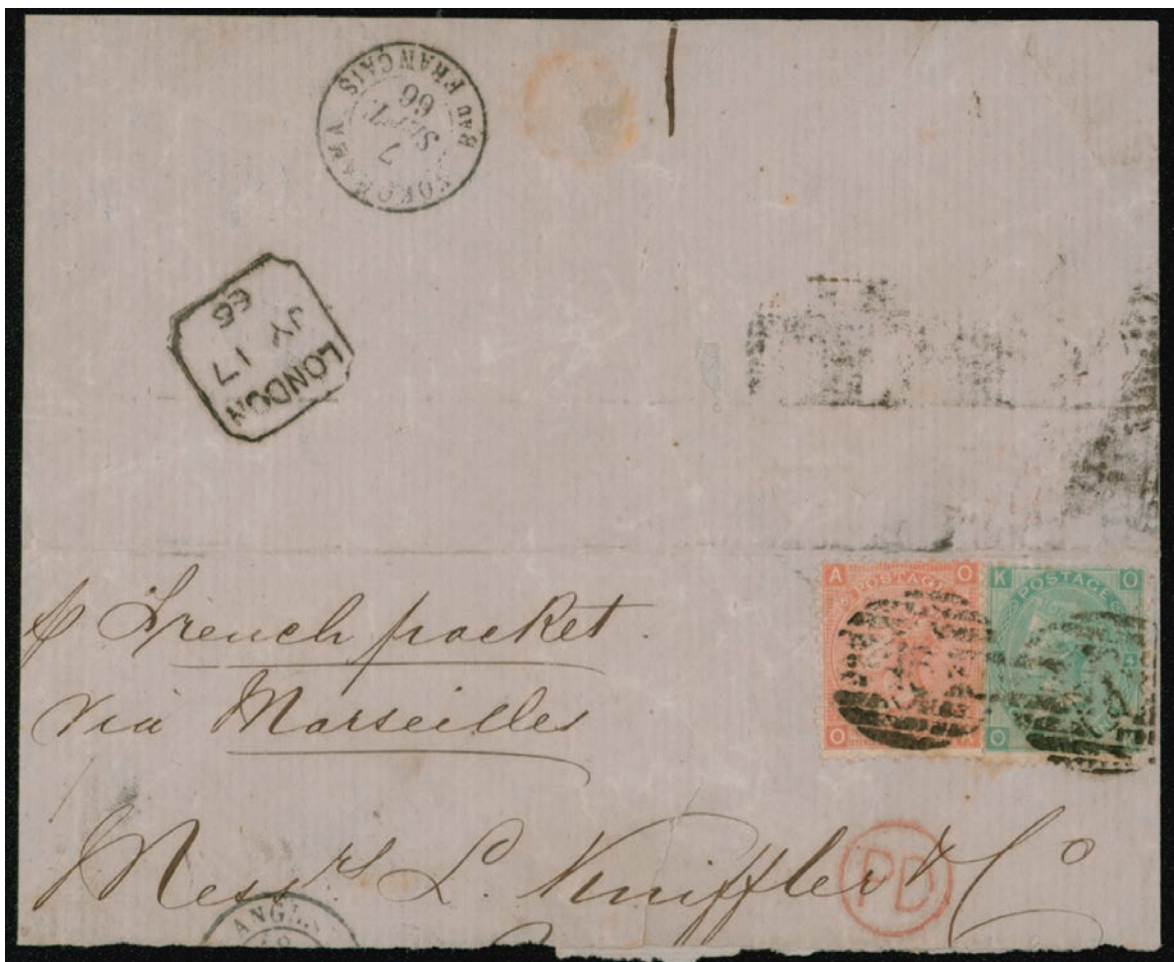 YOKOHAMA
Bau FRANCAIS
7
SEPT.
66
LONDON
JY 17
66
A POSTAGE O
O
K POSTAGE O
4
O
p French packet.
via Marseilles
Messrs L. Kniffler & Co
PD
ANGL.